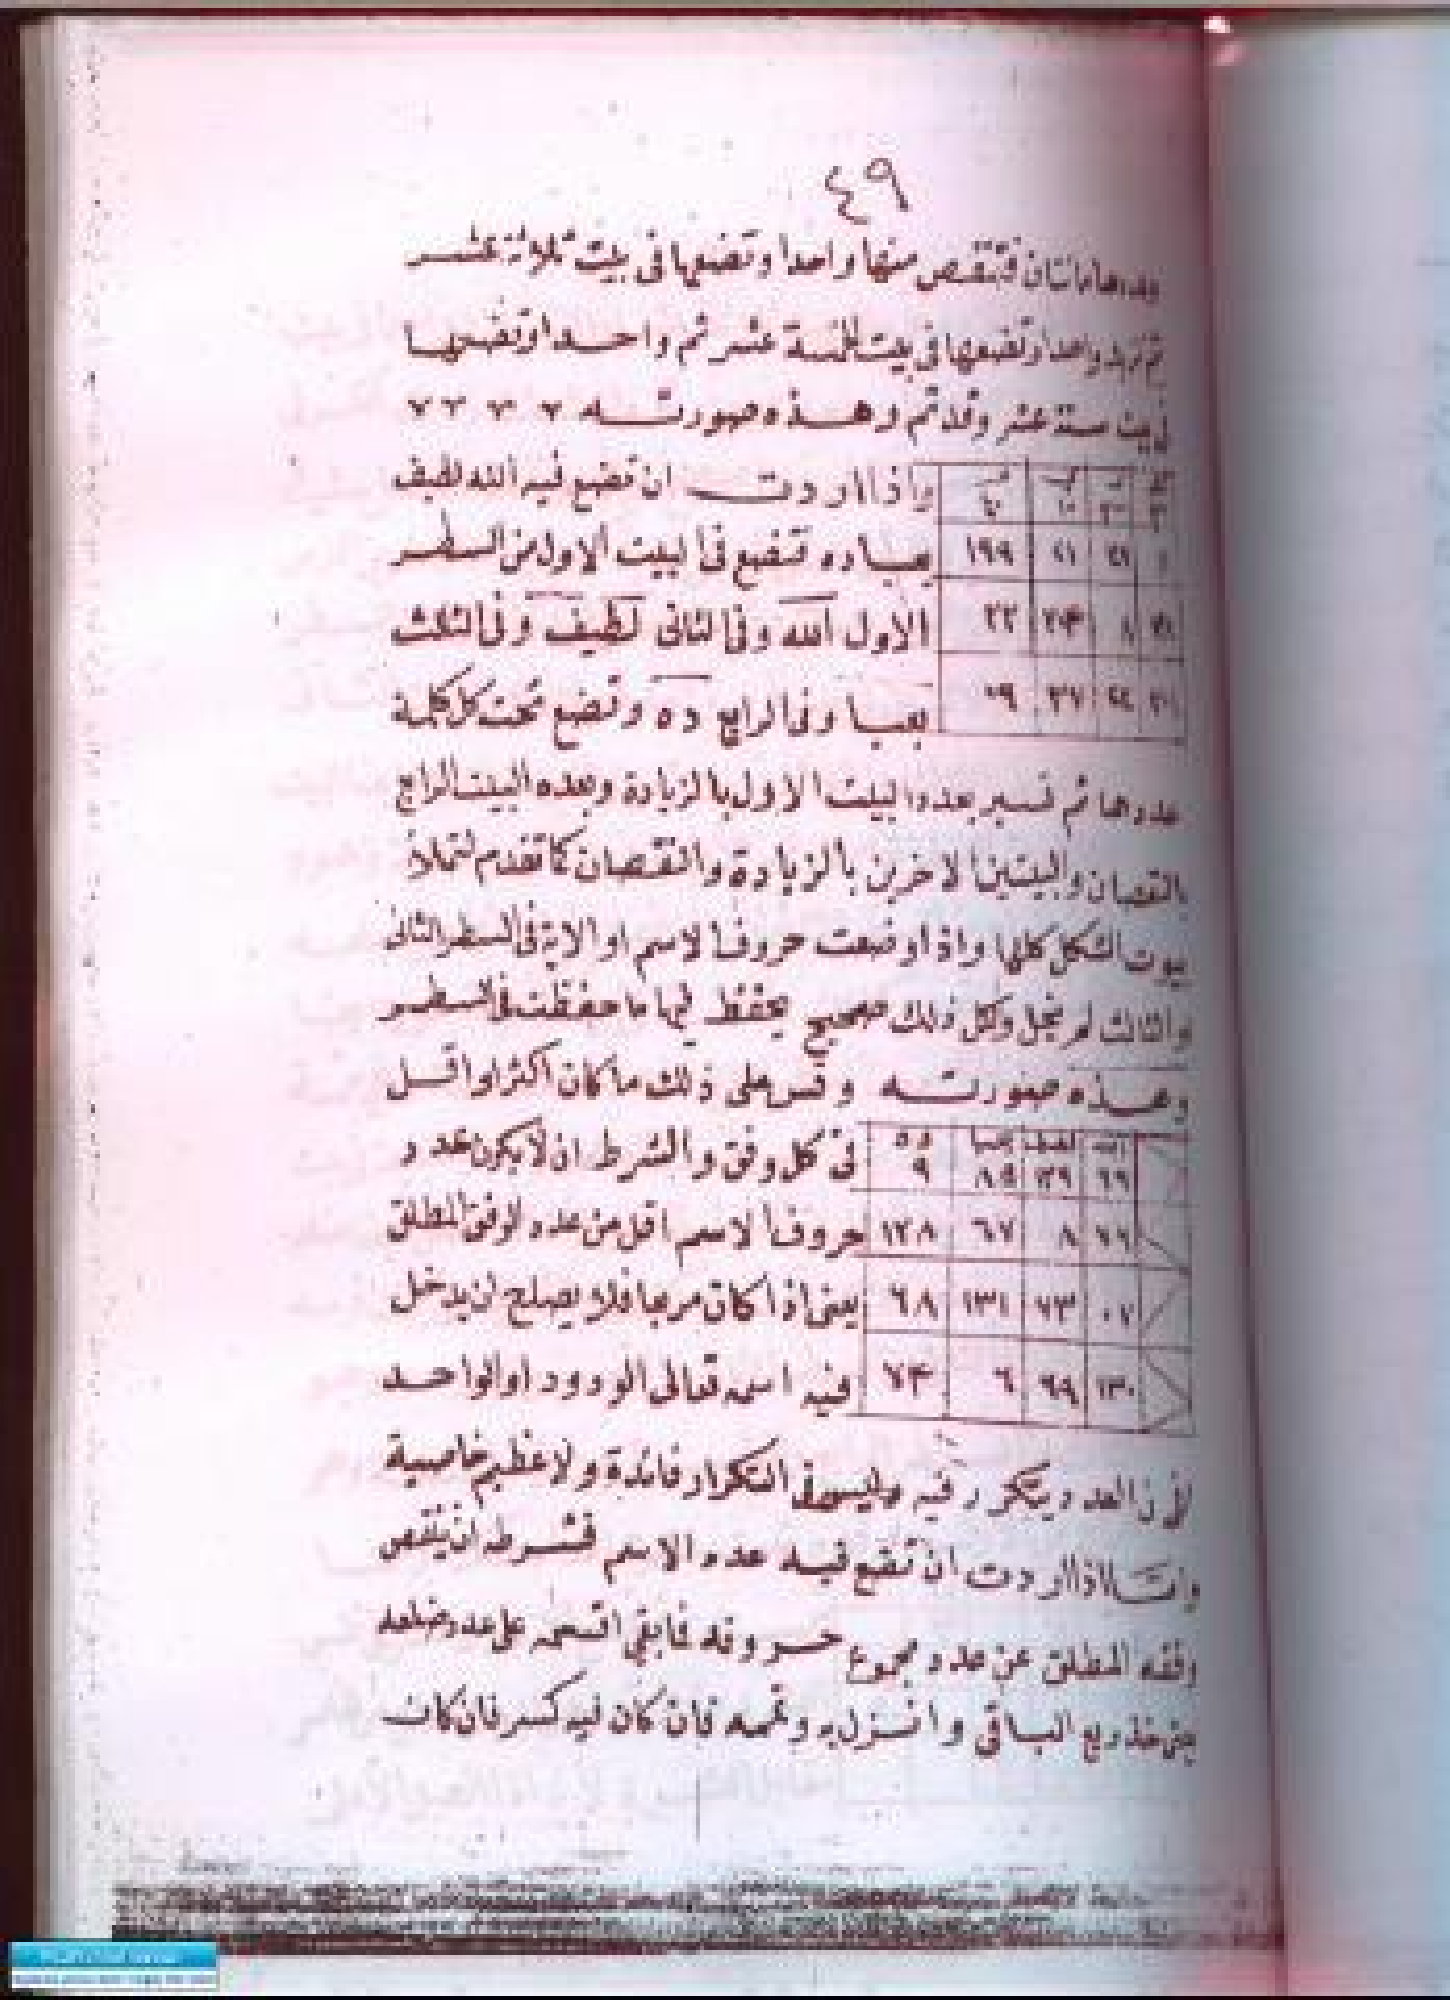 ٤٩
منها واحدا وتضعها فى بيت ثلاثة عشر
واحدا وتضعها فى بيت خمسة عشر ثم واحدا وتضعها
فى بيت ستة عشر وقد تم وهذه صورته
واذا اردت ان تضع فيه الله لطيف
١٩٩ ٢١
بعباده تضع فى البيت الاول من السطر
٢٢ ٨
الاول الله وفى الثانى لطيف وفى الثالث
٣٧
بعبا وفى الرابع ده وتضع تحت كل كلمة
عددها ثم تسير بعدد البيت الاول بالزيادة وبعده البيت الرابع
بالنقصان والبيتين الاخرين بالزيادة والنقصان كما تقدم لتملا
بيوت الشكل كلها واذا وضعت حروف الاسم او الاية فى السطر الثانى
والثالث لم يخل وكل ذلك صحيح يحفظ فيها ما حفظت فى السطر
وهذه صورته وقس على ذلك ما كان اكثر او اقل
الله لطيف بعبا ده
٩
فى كل وفق والشرط ان لا يكون عدد
٨ ٦٧ ١٢٨
حروف الاسم اقل من عدد الوفق المطلق
١٣١ ٦٨
يعنى اذا كان مربعا فلا يصلح ان يدخل
١٣٠ ٦٩ ٦
فيه اسمه تعالى الودود او الواحد
العدد يتكرر فيه وليس فى التكرار فائدة ولا عظيم خاصية
واما اذا اردت ان تضع فيه عدد الاسم فشرطه ان ينقص
وفقه المطلق عن عدد مجموع حروفه فما بقى اقسمه على عدد ضلعه
يعنى خذ ربع الباقى وانزل به وتممه فان كان فيه كسر فان كان